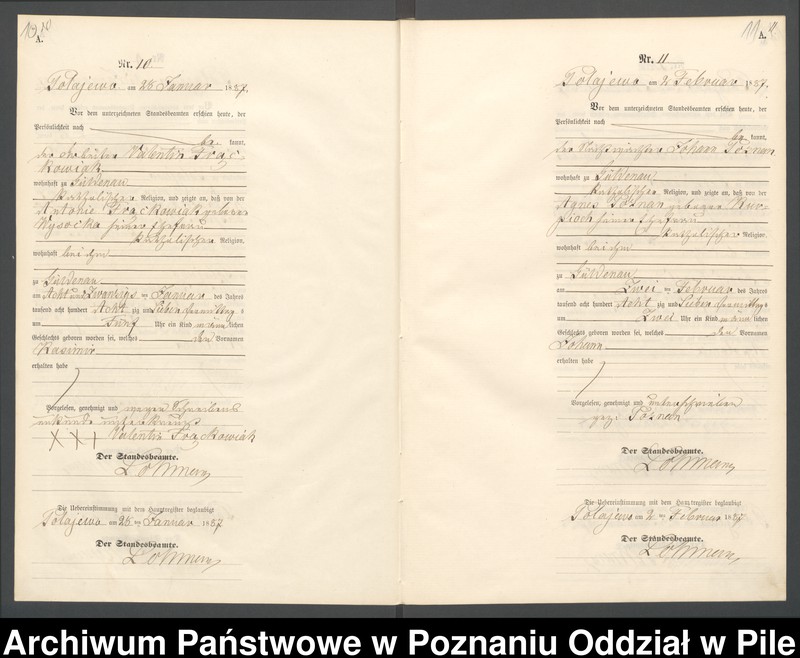 10
A.
Nr. 10
Polajewo am 28 Januar 1887.
Vor dem unterzeichneten Standesbeamten erschien heute, der
Persönlichkeit nach
be kannt,
der Arbeiter Valentin Frąc
kowiak
wohnhaft zu Güldenau
katholischer Religion, und zeigte an, daß von der
Antonie Frąckowiak geborene
Wysocka seiner Ehefrau
katholischer Religion,
wohnhaft bei ihm
zu Güldenau
am Acht und Zwanzigs ten Januar des Jahres
tausend acht hundert Acht zig und Sieben Vormittags
um Fünf Uhr ein Kind männ lichen
Geschlechts geboren worden sei, welches den Vornamen
Kasimir
erhalten habe
Vorgelesen, genehmigt und wegen Schreibens
unkunde unterkreuzt
XX+ Valentin Frąckowiak
Der Standesbeamte.
Die Uebereinstimmung mit dem Hauptregister beglaubigt
Polajewo am 28 ten Januar 1887
Der Standesbeamte.
11
A.
Nr. 11
Polajewo am 2 Februar 1887.
Vor dem unterzeichneten Standesbeamten erschien heute, der
Persönlichkeit nach
be kannt,
der Nachtwächter Johann Poznan
wohnhaft zu Güldenau
katholischer Religion, und zeigte an, daß von der
Agnes Poznan geborene
seiner Ehefrau
katholischer Religion,
wohnhaft bei ihm
zu Güldenau
am Zwei ten Februar des Jahres
tausend acht hundert Acht zig und Sieben Vormittags
um Zwei Uhr ein Kind männ lichen
Geschlechts geboren worden sei, welches den Vornamen
Johann
erhalten habe
Vorgelesen, genehmigt und unterschrieben
gez. Poznan
Der Standesbeamte.
Die Uebereinstimmung mit dem Hauptregister beglaubigt
Polajewo am 2 ten Februar 1887
Der Standesbeamte.
Archiwum Państwowe w Poznaniu Oddział w Pile